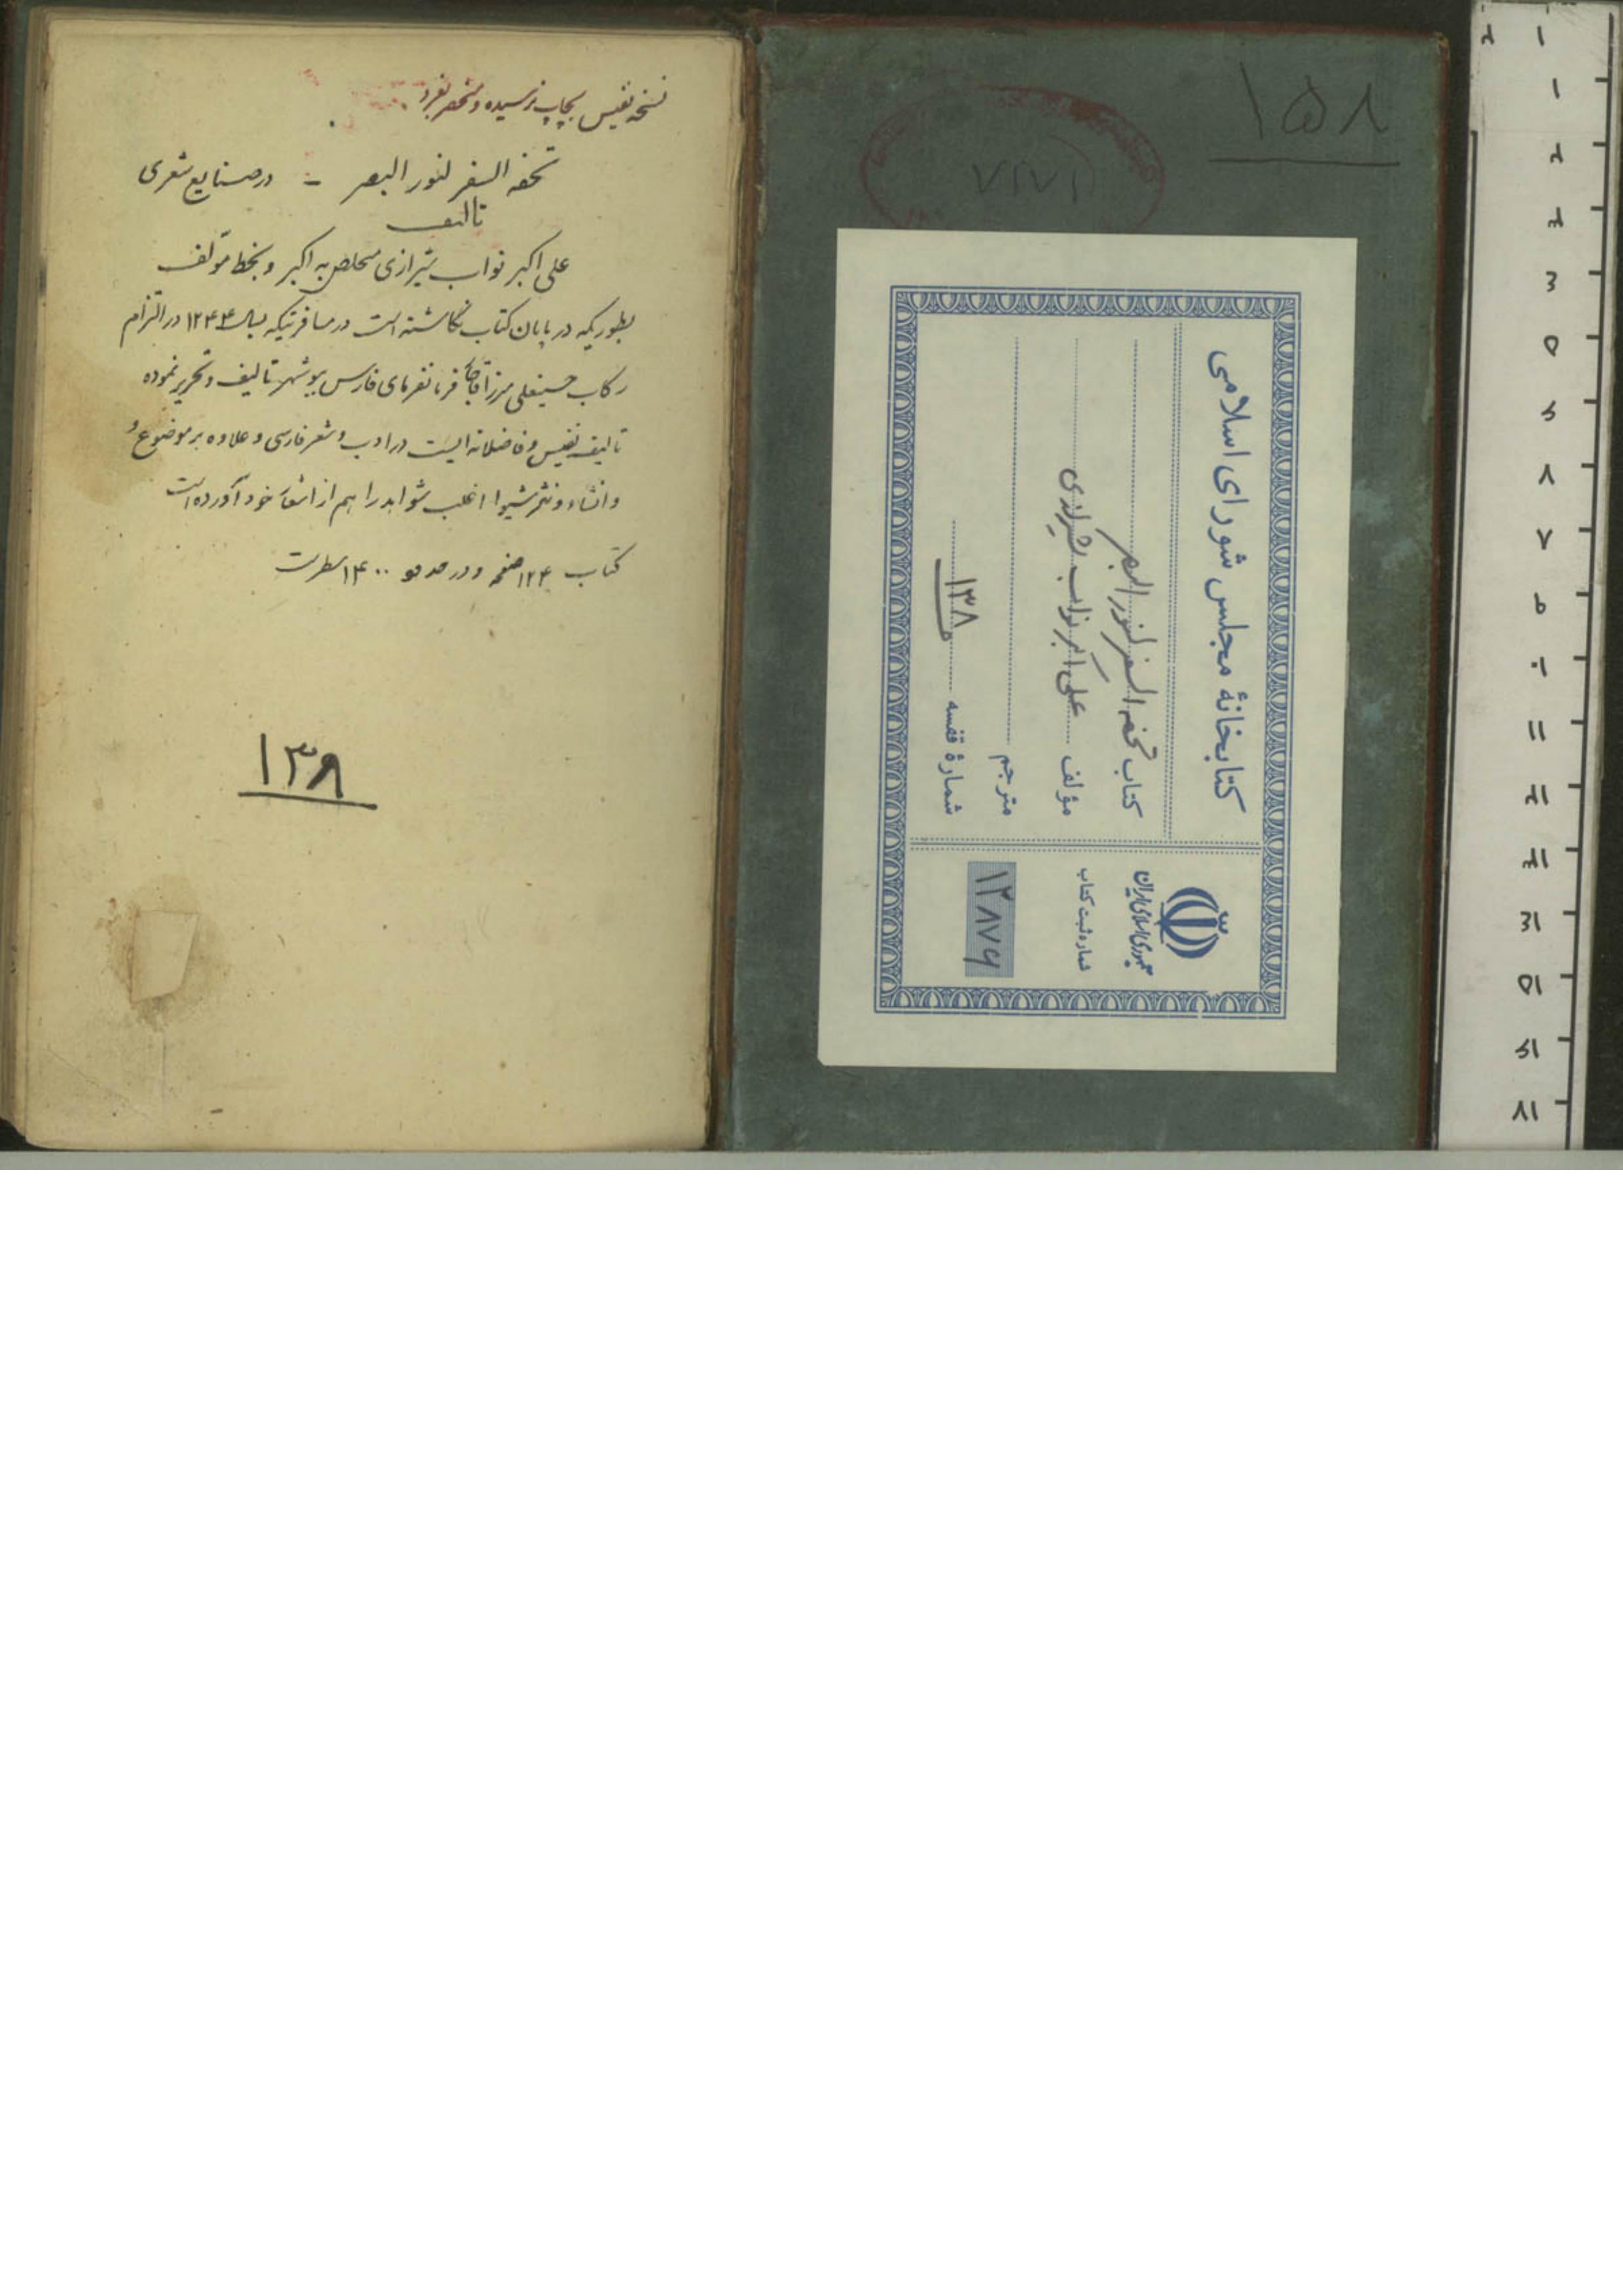 نسخه نفیس بچاپ نرسیده و منحصر بفرد.
تحفه السفر لنور البصر – در صنایع شعری
تالیف
علی اکبر نواب شیرازی متخلص به اکبر و بخط مؤلف
بطوریکه در پایان کتاب نگاشته است در مسافرتیکه بسال ۱۲۴۴ در التزام
رکاب حسینعلی میرزا قاجار فرمانفرمای فارس ببوشهر تالیف و تحریر نموده
تالیف نفیس و فاضلانه ایست در ادب و شعر فارسی و علاوه بر موضوع و
و انشاء و نثر شیوا اغلب شواهد را هم از اشعار خود آورده است
کتاب ۱۲۴ صفحه و در حدود ۱۴۰۰ سطر است
۱۳۸
۱۵۸
۷۲۷۱
کتابخانهٔ مجلس شورای اسلامی
کتاب تحفه السفر لنور البصر
مؤلف علی اکبر نواب شیرازی
مترجم
شمارهٔ قفسه ۱۳۸
جمهوری اسلامی ایران
شماره ثبت کتاب
۱۲۸۷۶
۱
۲
۱
۲
۳
۴
۵
۶
۷
۸
۹
۱۰
۱۱
۱۲
۱۳
۱۴
۱۵
۱۶
۱۷